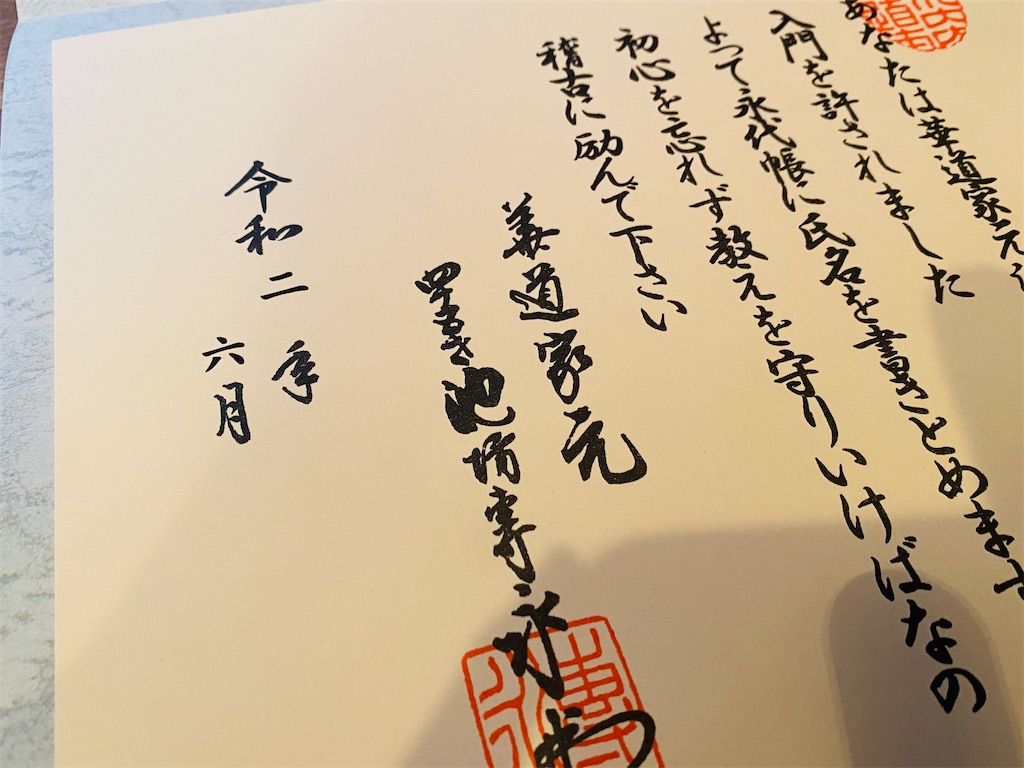 あなたは華道家元
入門を許されました
よって永代帳に氏名を書きとめます
初心を忘れず教えを守りいけばなの
稽古に励んで下さい
華道家元
四十五世 池坊専永
令和二年
六月